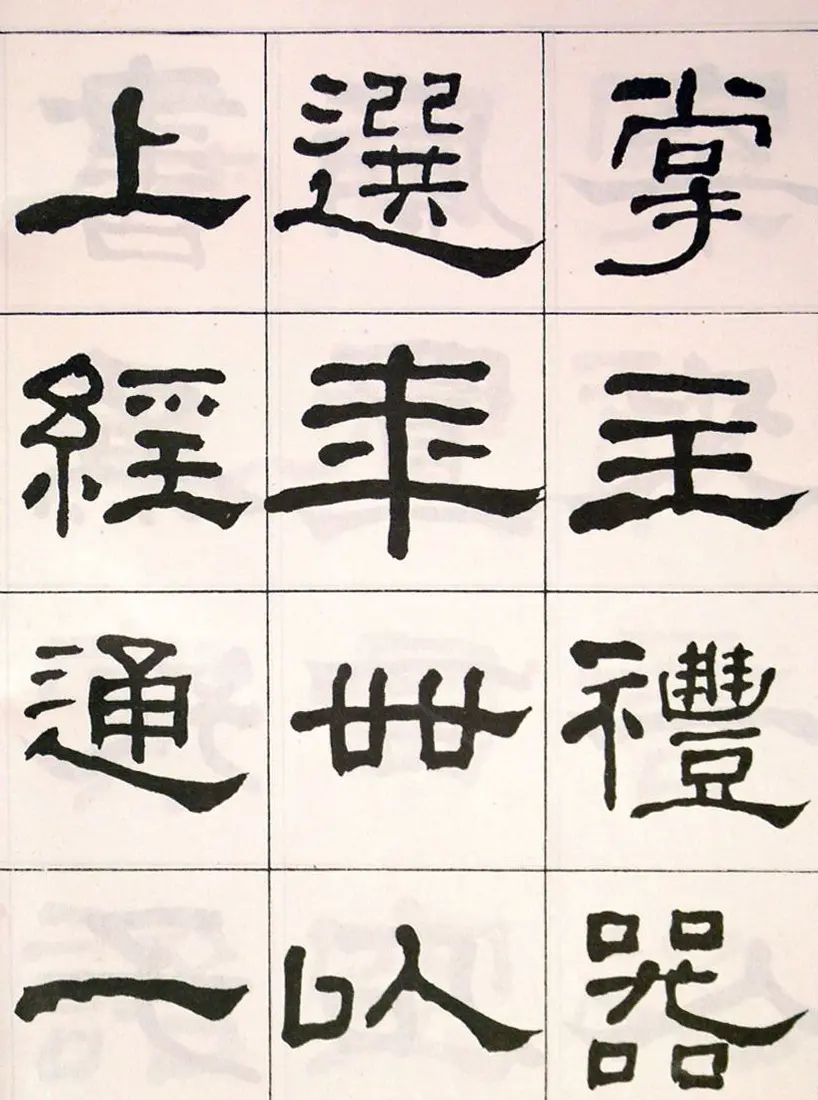 掌主禮器
選年卌以
上經通一